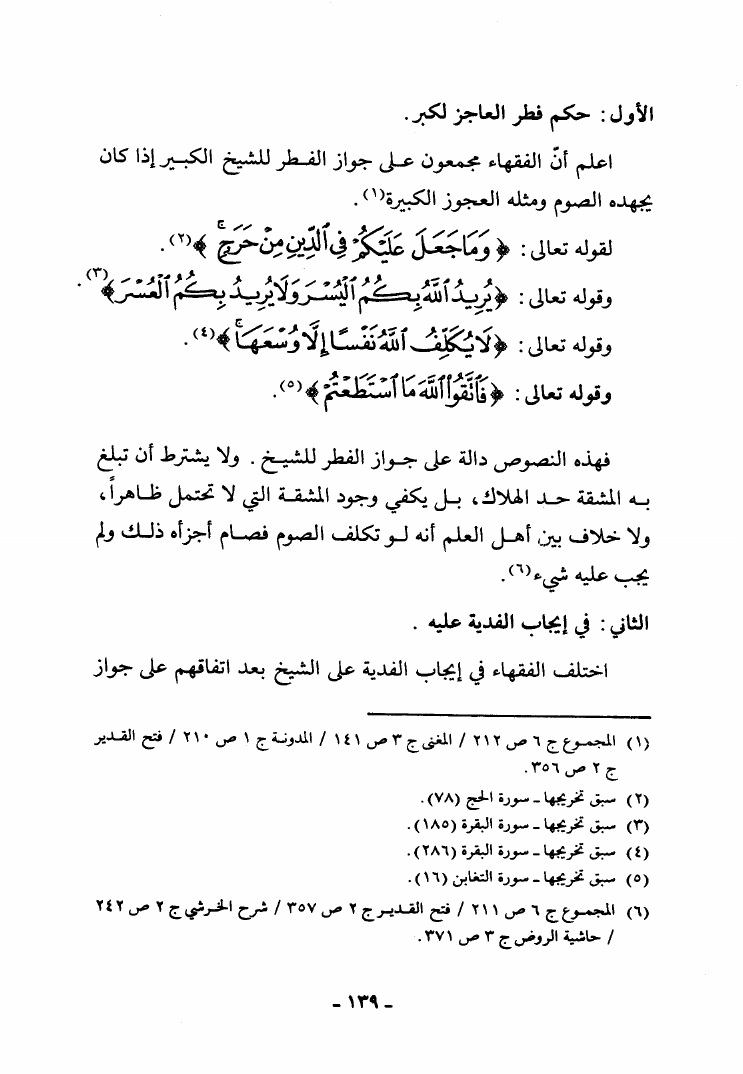 الأول : حكم فطر العاجز لكبر .
اعلم أنّ الفقهاء مجمعون على جواز الفطر للشيخ الكبير إذا كان
يجهده الصوم ومثله العجوز الكبيرة(١) .
لقوله تعالى : ﴿ وَمَا جَعَلَ عَلَيْكُمْ فِي ٱلدِّينِ مِنْ حَرَجٍ ۚ ﴾(٢) .
وقوله تعالى : ﴿يُرِيدُ ٱللَّهُ بِكُمُ ٱلْيُسْرَ وَلَا يُرِيدُ بِكُمُ ٱلْعُسْرَ﴾(٣) .
وقوله تعالى : ﴿ لَا يُكَلِّفُ ٱللَّهُ نَفْسًا إِلَّا وُسْعَهَا ۚ ﴾(٤) .
وقوله تعالى : ﴿ فَٱتَّقُوا۟ ٱللَّهَ مَا ٱسْتَطَعْتُمْ ﴾(٥) .
فهذه النصوص دالة على جواز الفطر للشيخ . ولا يشترط أن تبلغ
به المشقة حد الهلاك ، بل يكفي وجود المشقة التي لا تحتمل ظاهراً ،
ولا خلاف بين أهل العلم أنه لو تكلف الصوم فصام أجزأه ذلك ولم
يجب عليه شيء(٦) .
الثاني : في إيجاب الفدية عليه .
اختلف الفقهاء في إيجاب الفدية على الشيخ بعد اتفاقهم على جواز
(١) المجموع ج ٦ ص ٢١٢ / المغنى ج ٣ ص ١٤١ / المدونة ج ١ ص ٢١٠ / فتح القدير
ج ٢ ص ٣٥٦ .
(٢) سبق تخريجها ـ سورة الحج (٧٨) .
(٣) سبق تخريجها ـ سورة البقرة (١٨٥) .
(٤) سبق تخريجها ـ سورة البقرة (٢٨٦) .
(٥) سبق تخريجها ـ سورة التغابن (١٦) .
(٦) المجموع ج ٦ ص ٢١١ / فتح القدير ج ٢ ص ٣٥٧ / شرح الخرشي ج ٢ ص ٢٤٢
/ حاشية الروض ج ٣ ص ٣٧١ .
ـ ١٣٩ ـ